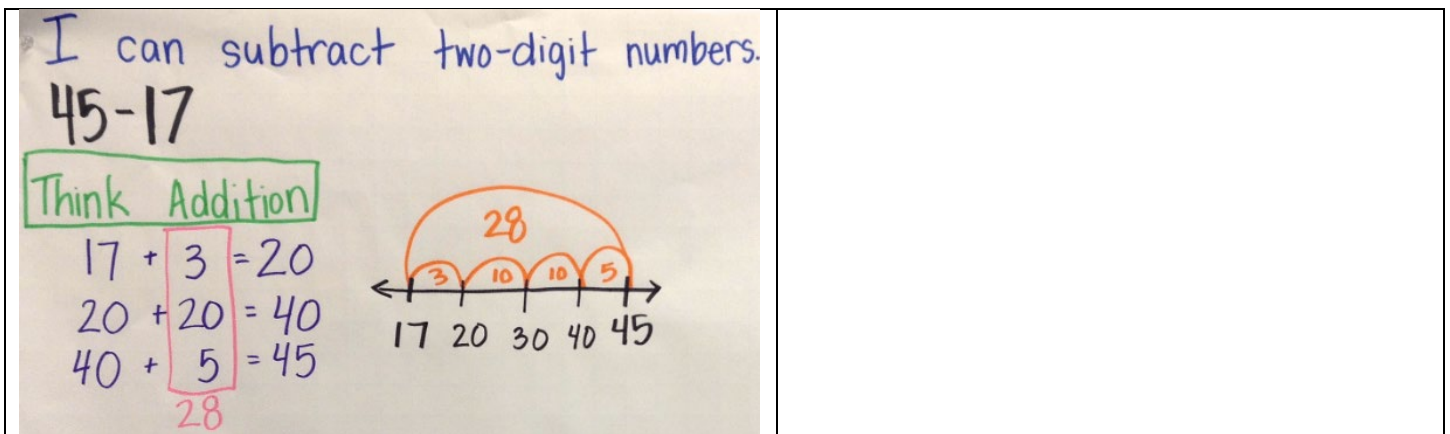 I can subtract two-digit numbers.
45-17
Think Addition
17 + 3 = 20
20 + 20 = 40
40 + 5 = 45
28
28
3 10 10 5
17 20 30 40 45